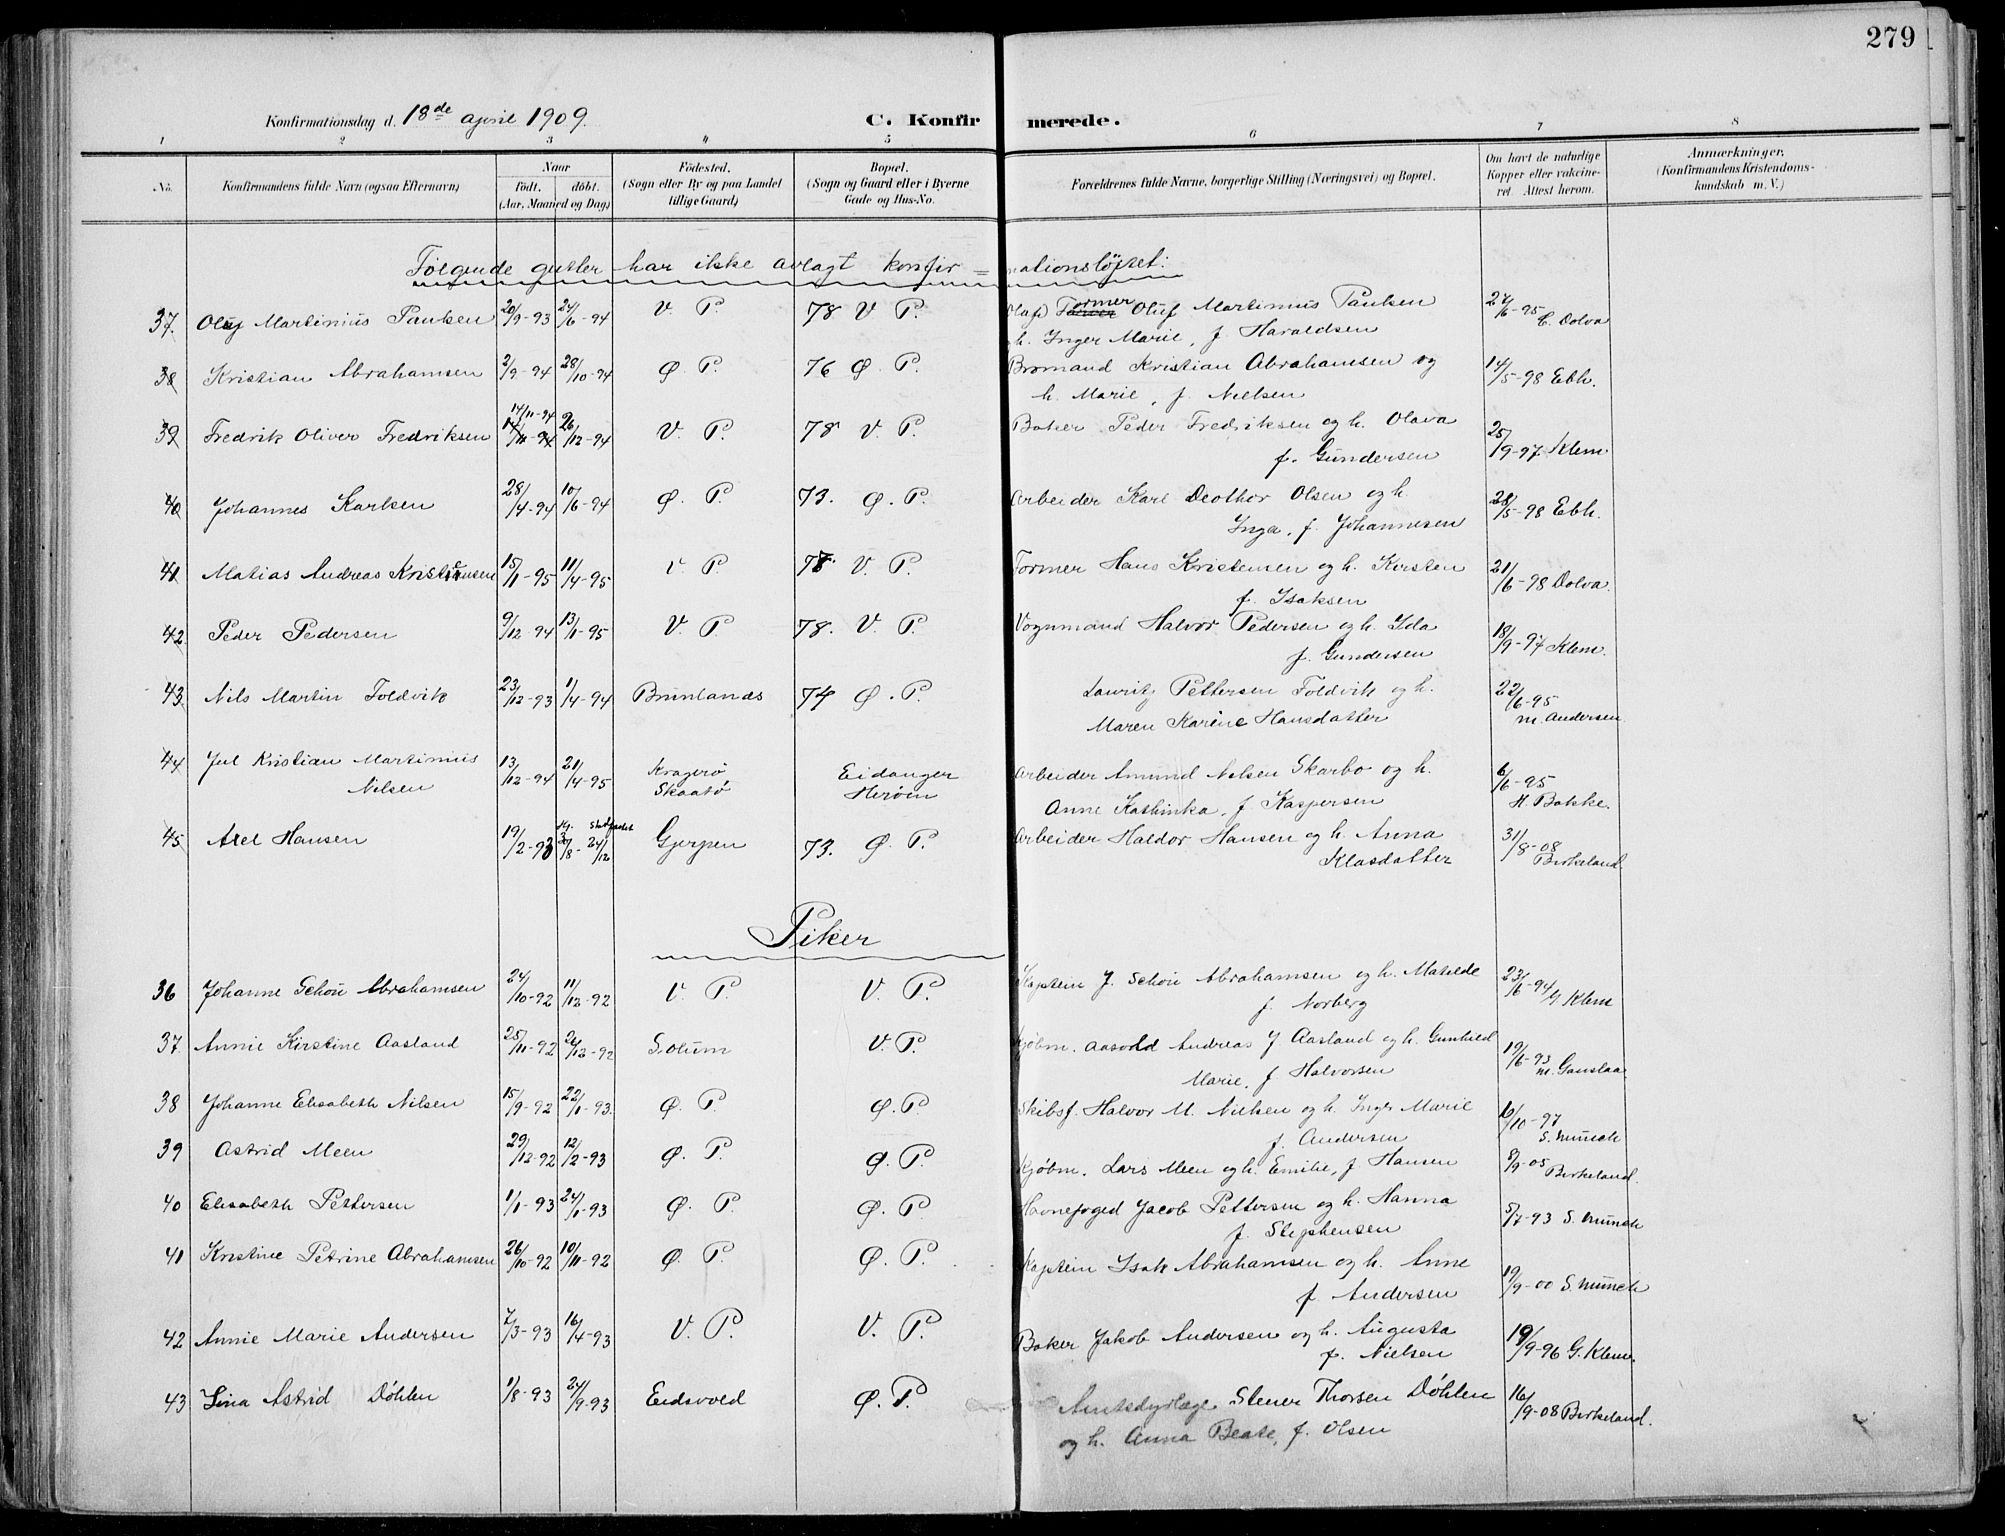 279
Konfirmationsdag d. 18de april 1909. C. Konfirmerede.
1 2 3 4 5 6 7 8
No. Konfirmandens fulde Navn (ogsaa Efternavn) Naar født. døbt. (Aar, Maaned og Dag) Fødested. (Sogn eller By og paa Landet tillige Gaard) Bopæl. (Sogn og Gaard eller i Byerne Gade og Hus-No. Forældrenes fulde Navne, borgerlige Stilling (Næringsvei) og Bopæl. Om havt de naturlige Kopper eller vakcineret. Attest herom. Anmærkninger. (Konfirmandens Kristendomskundskab m. V.)
Følgende gutter har ikke avlagt konfir= mationsløftet:
37. Oluf Martinius Paulsen 20/9-93 24/6-94 V. P. 78 V P. Former Oluf Martinius Paulsen 27/6-95 C. Dolva
h. Inger Marie, f. Haraldsen
38 Kristian Abrahamsen 2/9-94 28/10-94 Ø P. 76 Ø P. Brømand Kristian Abrahamsen og 14/5-98 Ebh.
h. Marie, f. Nielsen
14/11-94
39 Fredrik Oliver Fredriksen 26/12-94 V. P. 78 V. P. Baker Peder Fredriksen og h. Olava 25/9-97 Klem
f. Gundersen
40 Johannes Karlsen 28/4-94 10/6-94 Ø. P. 73. Ø. P. Arbeider Karl Olsen og h. 28/5-98 Ebh.
Inga, f. Johannesen
41 Matias Andreas Kristensen 15/1-95 11/4-95 V. P. 78. V. P. Former Hans Kristensen og h. Kirsten 21/6-98 Dolva.
f. Isaksen
42. Peder Pedersen 9/12 94 13/1-95 V. P. 78. V. P. Vognmand Halvor Pedersen og h. Ida 18/9-97 Klem.
f. Gundersen
43. Nils Martin Foldvik 23/12-93 1/4-94 Brunlanæs 74 Ø. P. Lauritz Pettersen Foldvik og h. 22/6-95
Maren Karine Hansdatter M. Andersen
44 Jul Kristian Martinius 13/12-94 21/4-95 Kragerø Eidanger Arbeider Amund Nelsen Skarbo og h. 6/6-95
Nilsen Skaatø Herøen Anne Kathinka, f. Kaspersen H. Bakke.
45. Axel Hansen 19/2-93 Gjerpen 73. Ø. P. Arbeider Haldor Hansen og h. Anna 31/8-08
Klasdatter Birkeland
Piker
36 Johanne Schou Abrahamsen 24/10-92 11/12-92 V. P. V. P. Kaptein J. Schou Abrahamsen og h. Matilde 23/6-94 G Klem
f. Norberg
37. Annie Kirstine Aasland 25/11-92 24/12-92 Solum V. P. Kjøbm. Aasvold Andreas J Aasland og h. Gunhild 19/6-93
Marie, f. Halvorsen
38 Johanne Elisabeth Nilsen 15/9-92 22/1-93. Ø. P. Ø. P. Skibsf. Halvor M. Nielsen og h. Inger Marie 16/10-97
f. Andersen S. Münch
39 Astrid Meen 29/12-92 12/2-93 Ø. P. Ø. P. Kjøbm. Lars Meen og h. Emilie, f. Hansen 8/9-05 Birkeland.
40 Elisabeth Pettersen 1/1-93 24/1-93 Ø. P. Ø. P. Havnefoged Jacob Pettersen og h. Hanna 5/7-93 S. Münch
f. Stephensen
41 Kristine Petrine Abrahamsen 26/10-92 10/11-92 Ø. P. Ø. P. Kaptein Isak Abrahamsen og h. Anne 19/9-00 S. Münch
f. Andersen
42 Annie Marie Andersen 7/3-93 16/4-93 V. P. V. P. Baker Jakob Andersen og h. Augusta 19/9-96 G. Klem.
f. Nielsen
43 Lina Astrid Døhlen 1/8-93 24/9-93 Eidsvold Ø. P. Amtsdyrlæge Stener Thorsen Døhlen 16/9-08 Birkeland.
og h. Anna Beate, f. Olsen